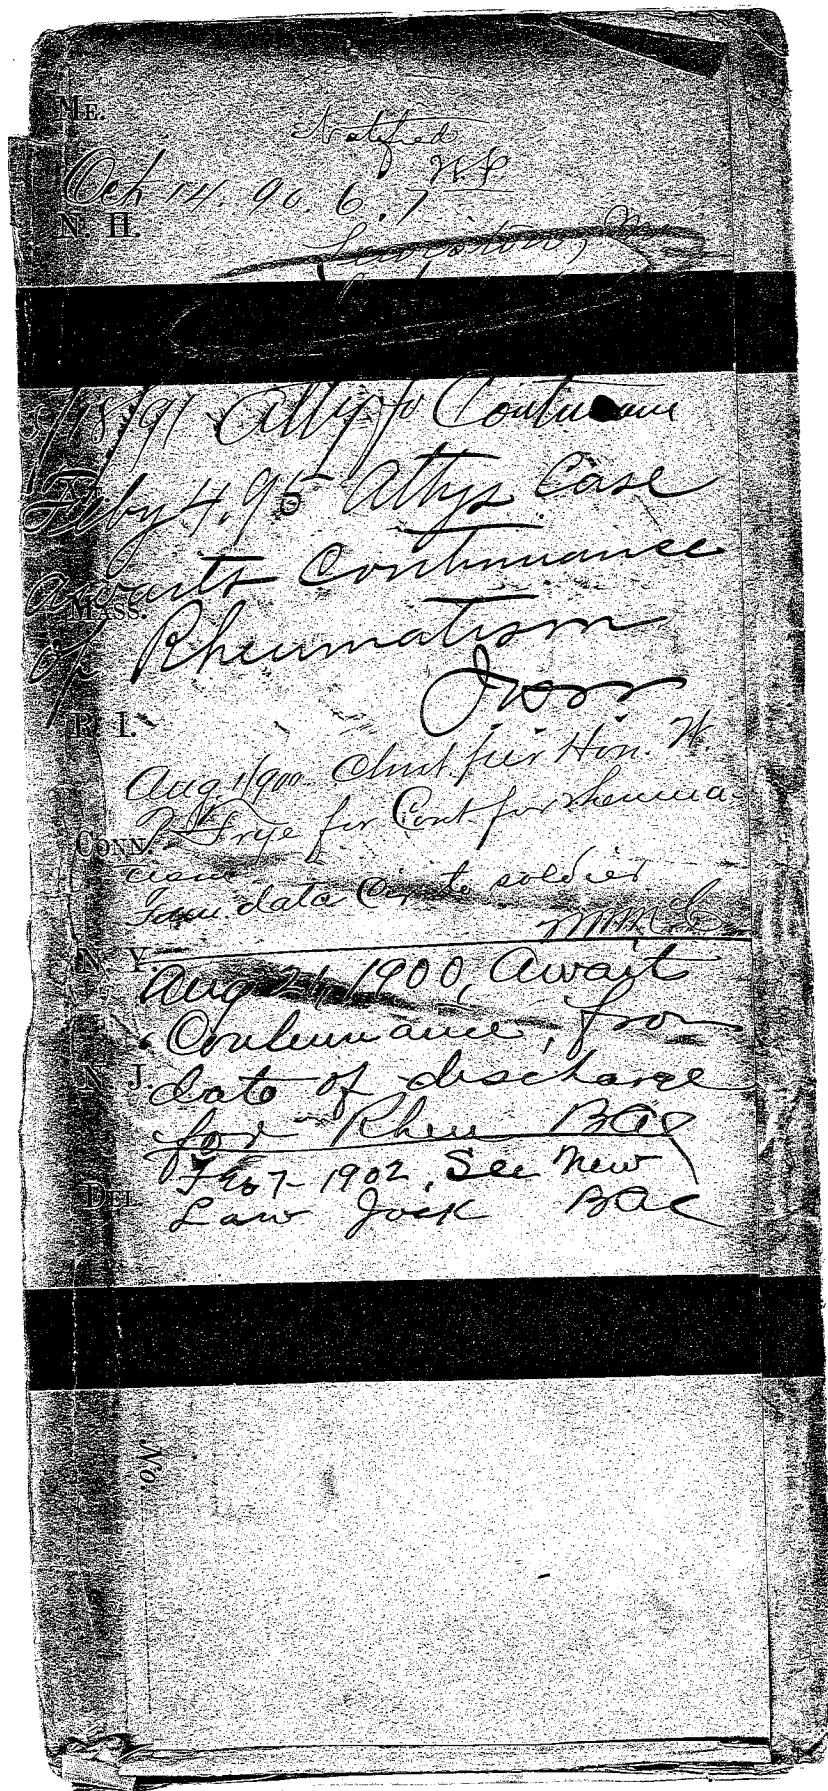 ME.
Notified
Oct 14. 90. 6. 7
N. H.
Lewiston, Me
91 Atty for Continuance
Feby 4, 95 Attys Case
awaits Continuance
MASS.
of Rheumatism
R. I.
Aug 1/900 Hon. W.
P. Frye for Cont for rheuma-
CONN.
tism
data Cir to soldier
N. Y.
Aug 1900, Await
Continuance, from
N. J.
date of discharge
for Rheu BAC
Feb 7 - 1902, See New
DEL.
Law Jack BAC
No.